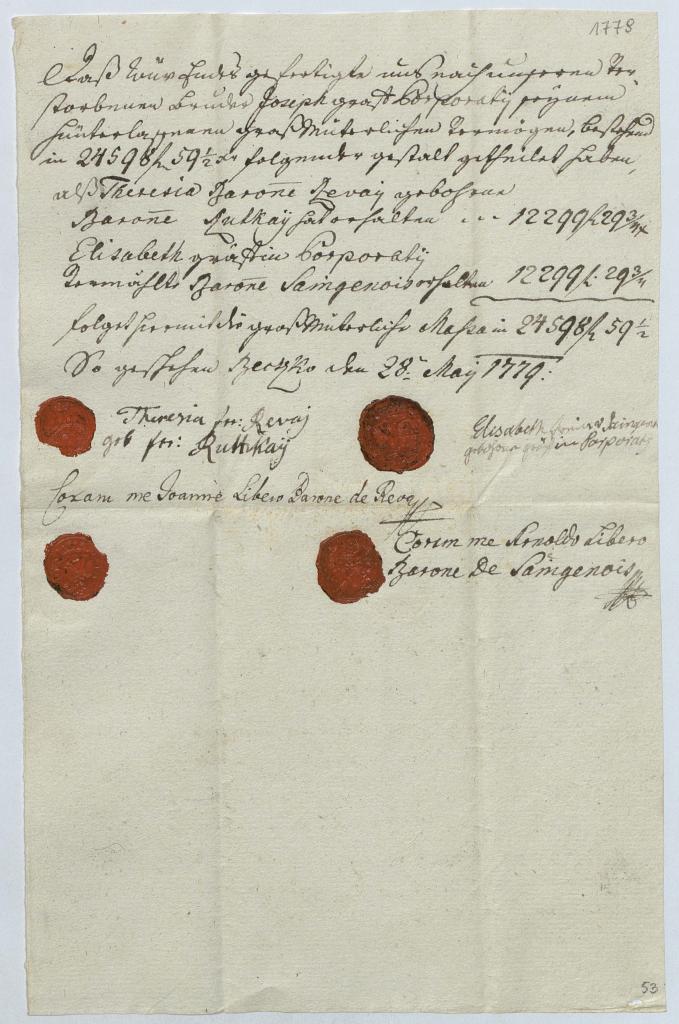 1779
Daß wür Endes gefertigte uns nach unseren Ver-
storbenen Bruder Joseph graff Corporatÿ seÿnem
hünterlassenen groß Müterlichen Vermögen, bestehend
in 24598 f 59 1/2 xr folgender gestalt getheilet haben,
alß Theresia Barone Revaÿ gebohrne
Barone Rutkaÿ hat erhalten ... 12299 f 29 3/4 x
Elisabeth gräffin Corporatÿ
Vermählte Barone Saingenois erhalten 12299 f: 29 3/4
folget hiermit die groß Müterliche Massa in 24598 f 59 1/2
So geschehen Beczko den 28t. Maÿ 1779:
Theresia fr: Revaj
geb fr: Ruttkaÿ
Elisabeth freiin v Saingenois
gebohrne gräfin Corporatÿ
Coram me Joanne Libero Barone de Reva
Coram me Arnoldo Libero
Barone De Saingenois
53